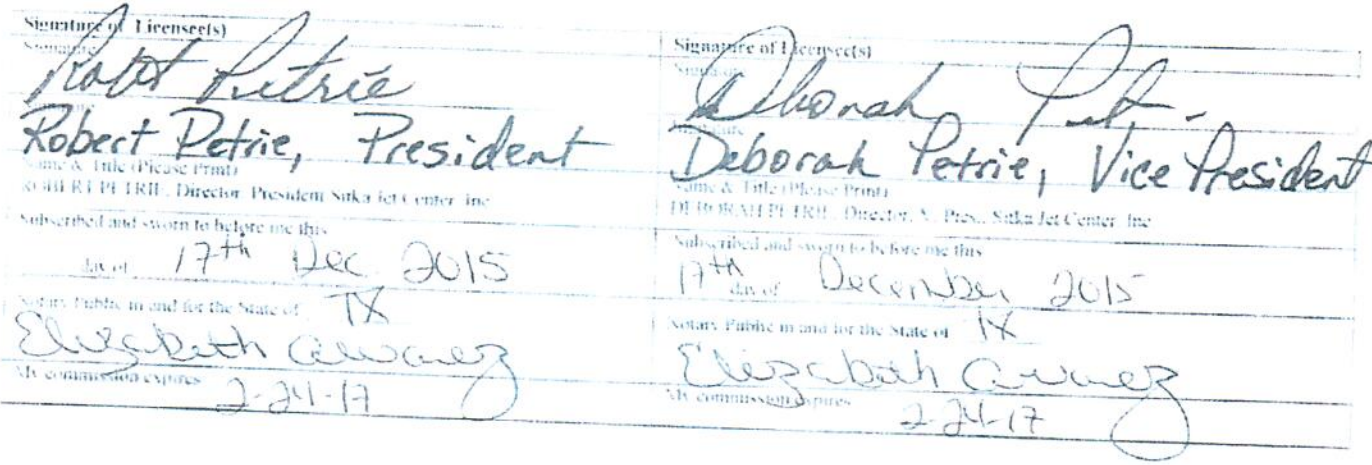 Signature of Licensee(s)
Signature
Robt Petrie
Signature
Robert Petrie, President
Name & Title (Please Print)
ROBERT PETRIE, Director, President Sitka Jet Center, Inc
Subscribed and sworn to before me this
day of 17th Dec 2015
Notary Public in and for the State of TX
Elizabeth Alvarez
My commission expires
2-24-17
Signature of Licensee(s)
Signature
Deborah Pet
Signature
Deborah Petrie, Vice President
Name & Title (Please Print)
DEBORAH PETRIE, Director, V. Pres., Sitka Jet Center, Inc
Subscribed and sworn to before me this
17th day of December 2015
Notary Public in and for the State of TX
Elizabeth Alvarez
My commission expires
2-24-17